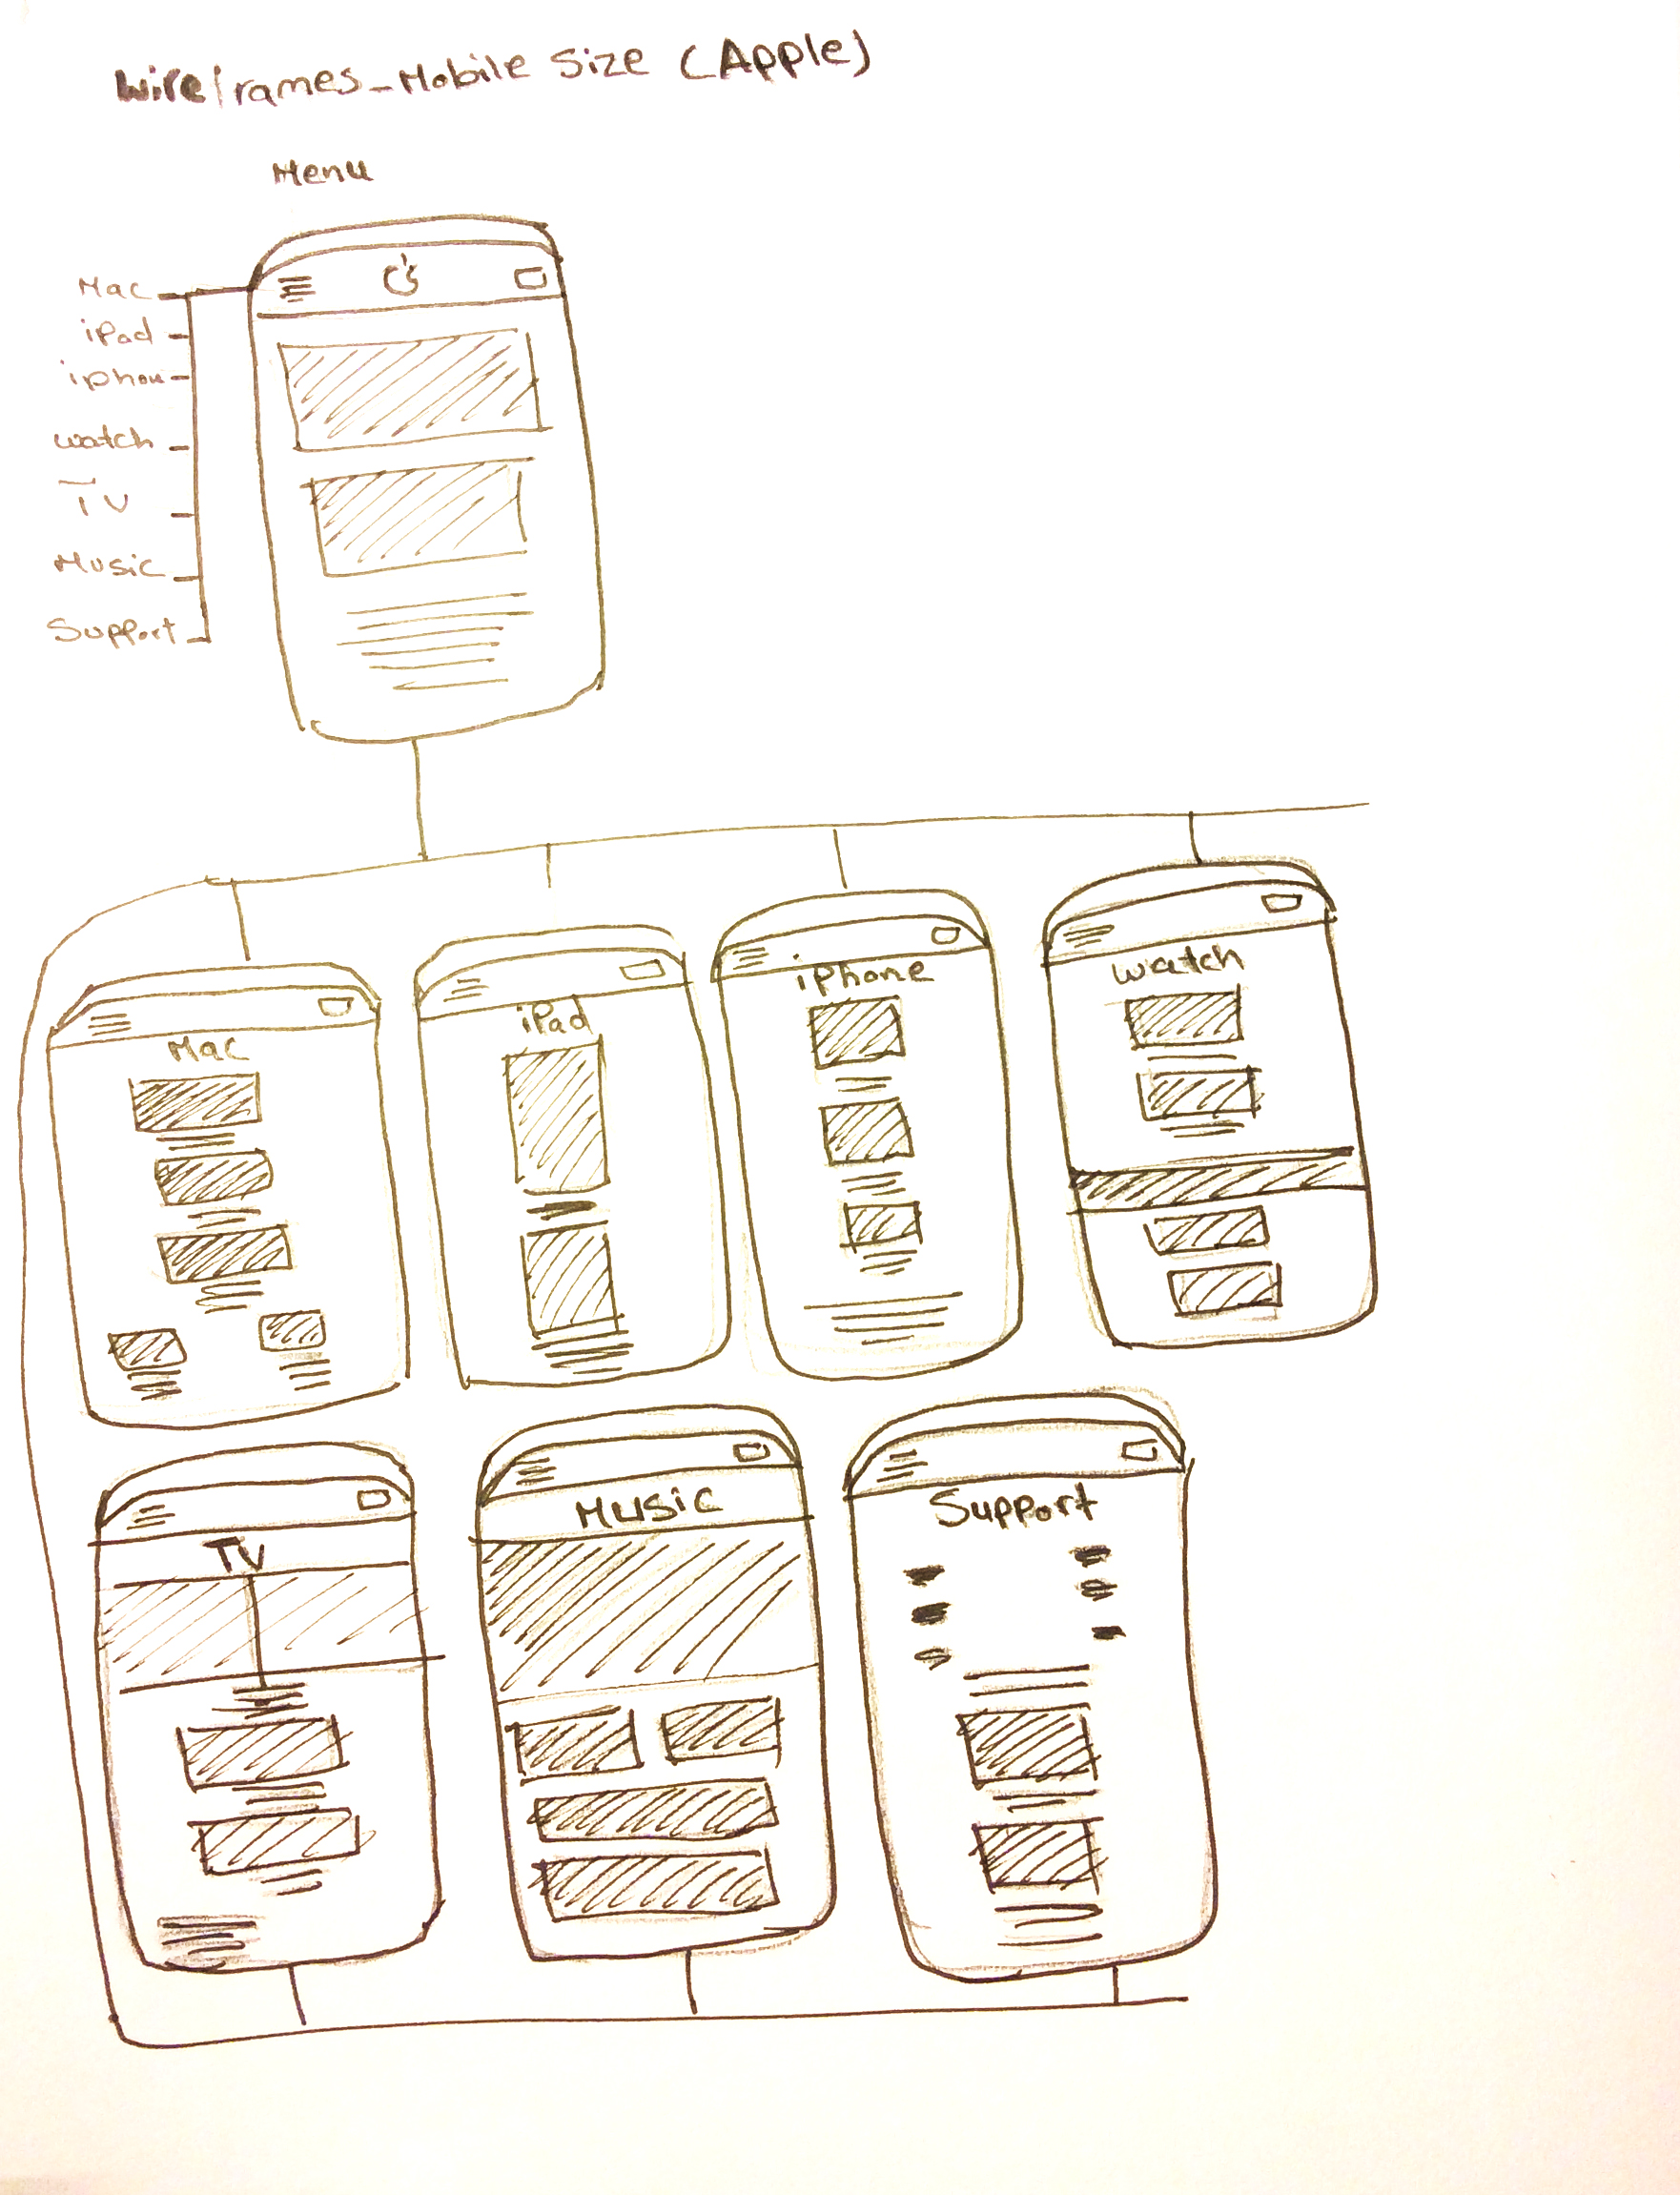 Wireframes_Mobile Size (Apple)
Menu
Mac
iPad
iphon
watch
TV
Music
Support
Mac
iPad
iPhone
watch
TV
Music
Support